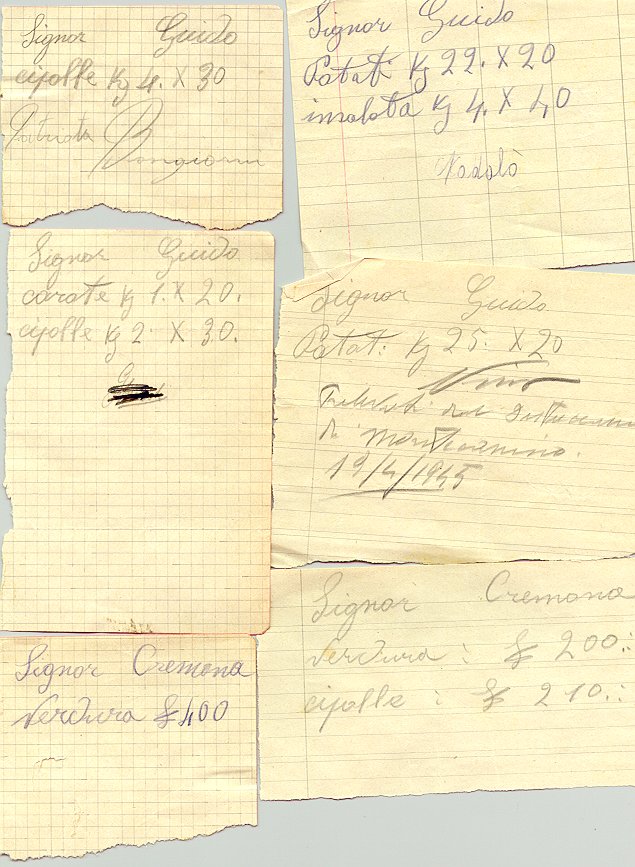 Signor Guido
cipolle Kg 4. X 30
Patriota Bongiorni
Signor Guido
Patati Kg 22. X 20
insalata Kg 4. X 40
Nadolò
Signor Guido
carote Kg 1. X 20.
cipolle Kg 2. X 30.
Signor Guido
Patati Kg 25. X 20
Nino
Prelevati dal
di
19/4/1945
Signor Cremona
verdura : £ 200.:
cipolle : £ 210.:
Signor Cremona
Verdura £ 400